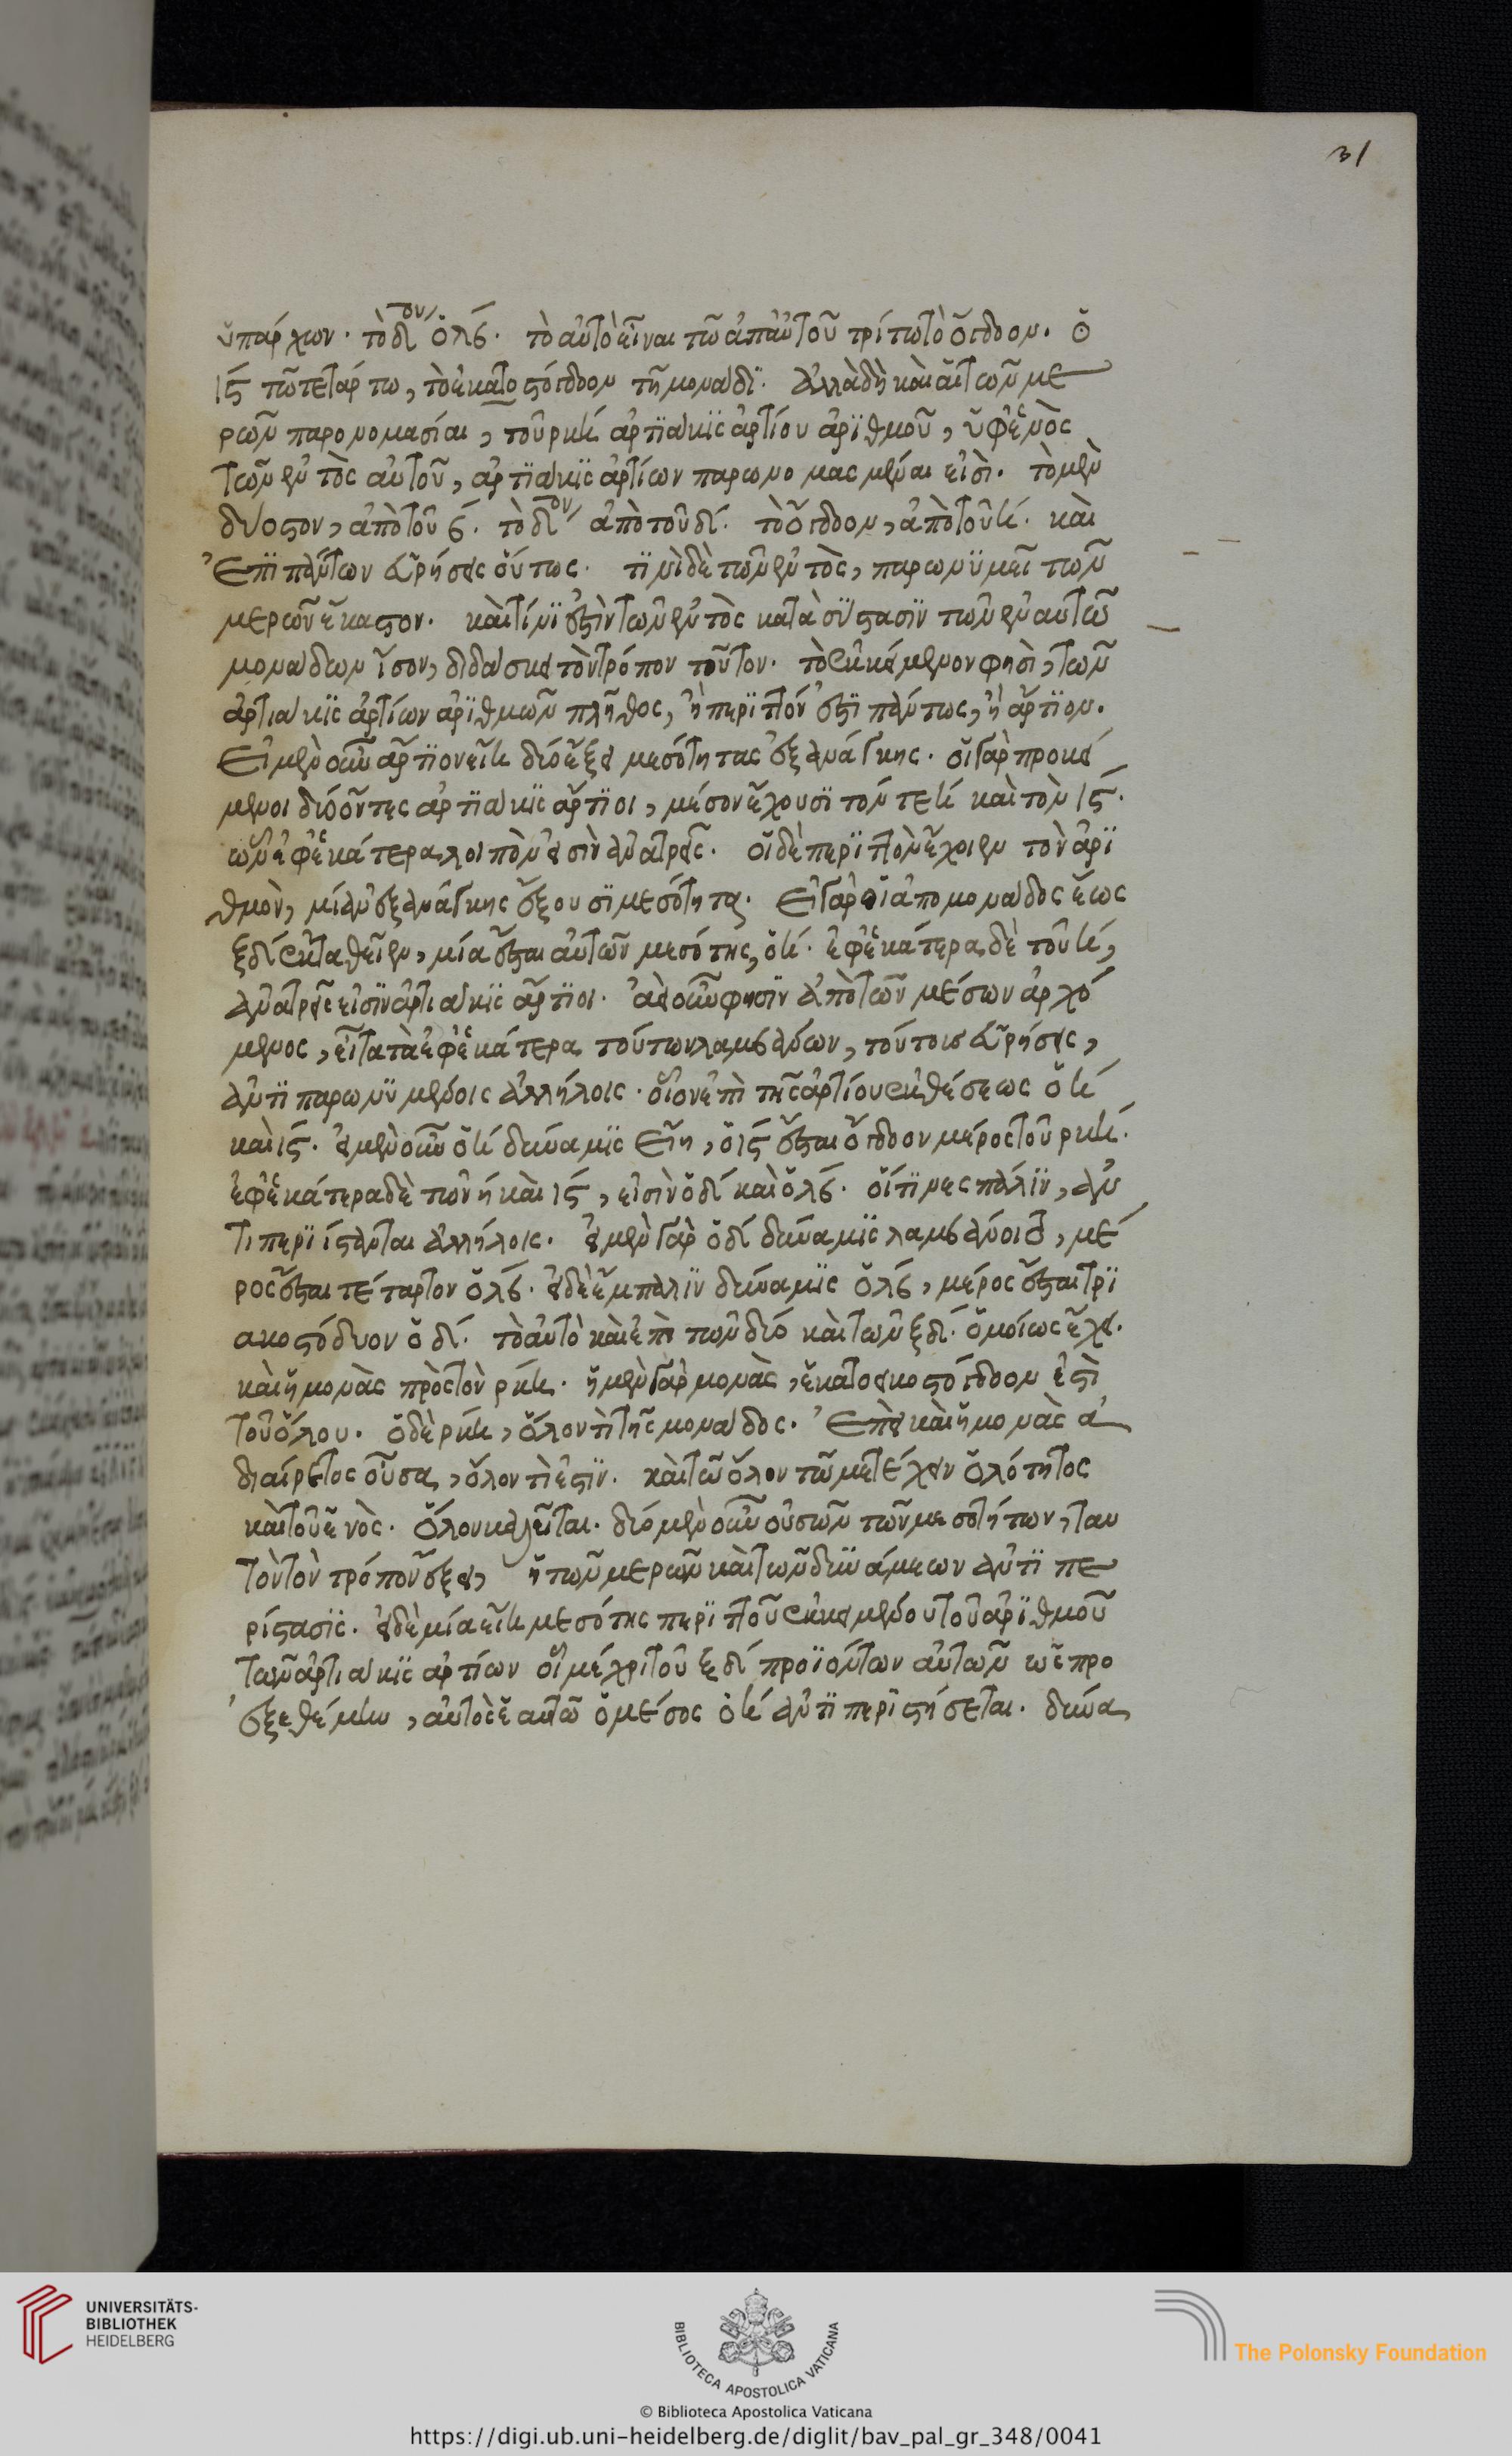 31
ὑπάρχων· τὸ δ΄ὸν ὁ λβ΄· τὸ αὐτὸ εἶναι τῶ ἀπ' αὐτοῦ τρίτω τὸ ὄγδοον· ὁ
ις τῶ τετάρτω, τὸ ἑκατοστόγδοον τῆ μονάδϊ· ἀλλὰ δὴ καὶ αἱ τῶν με
ρῶν παρονομασίαι, τοῦ ρκη΄ ἀρτϊάκϊς ἀρτίου ἀρϊθμοῦ, ὑφ' ἑνὸς
τῶν ἐντὸς αὐτοῦ, ἀρτϊάκϊς ἀρτίων παρωνομασμέναι εἰσὶ· τὸ μὲν
δύοστον, ἀπὸ τοῦ β΄· τὸ δ΄ον ἀπὸ τοῦ δ΄· τὸ ὄγδοον, ἀπὸ τοῦ η΄· καὶ
ἐπϊ πάντων εὑρήσεις οὕτως· τίνϊ δὲ τῶν ἐντὸς, παρωνϋμεῖ τῶν
μερῶν ἕκαστον· καὶ τίνϊ ἐστὶν τῶν ἐντὸς κατὰ σύστασϊν τῶν ἐν αὐτῶ
μονάδων ἴσον, διδάσκει τὸν τρόπον τοῦτον· τὸ ἐκκείμενον φησὶ, τῶν
ἀρτιάκϊς ἀρτίων ἀρϊθμῶν πλῆθος, ἢ περϊττόν ἐστϊ πάντως, ἢ ἄρτϊον·
Εἰ μὲν οὖν ἄρτϊον εἴη δύο ἕξει μεσότητας ἐξ ἀνάγκης· οἱ γὰρ προκεί
μενοι δύο ὄντες ἀρτϊάκϊς ἄρτϊοι, μέσον ἔχουσϊ τόν τε η΄ καὶ τὸν ις΄·
ὧν ἐφ' ἑκάτερα λοιπὸν εἰσὶν ἀνὰ τρεῖς· οἱ δὲ περϊττὸν ἔχοιεν τὸν ἀρϊ
θμὸν, μίαν ἐξ ἀνάγκης ἕξουσϊ μεσότητα· Εἰ γὰρ οἱ ἀπο μονάδος ἕως
ξδ΄ ἐκταθεῖεν, μία ἔσται αὐτῶν μεσότης, ὁ η΄· ἐφ' ἑκάτερα δὲ τοῦ η΄,
ἀνὰ τρεῖς εἰσϊν ἀρτιάκϊς ἄρτϊοι· ἀεὶ οὖν φησϊν ἀπὸ τῶν μέσων ἀρχό
μενος, εἶτα τὰ ἐφ' ἑκάτερα τούτων λαμβάνων, τούτοις εὑρήσεις,
ἀντϊπαρωνϋμένοις ἀλλήλοις· οἷον ἐπὶ τῆς ἀρτίου ἐκθέσεως ὁ η΄
καὶ ις· εἰ μὲν οὖν ὁ η΄ δύναμϊς εἴη, ὁ ις ἔσται ὄγδοον μέρος τοῦ ρκη΄·
ἐφ' ἑκάτερα δὲ τῶν η΄ καὶ ις, εἰσὶν ὁ δ΄ καὶ ὁ λβ΄· οἵτϊνες πάλϊν, ἀν
τιπερϊίστανται ἀλλήλοις· εἰ μὲν γὰρ ὁ δ΄ δύναμϊς λαμβάνοιτο, μέ
ρος ἔσται τέταρτον ὁ λβ΄· εἰ δὲ ἔμπαλϊν δύναμϊς ὁ λβ΄, μέρος ἔσται τρϊ
ακοστόδυον ὁ δ΄· τὸ αὐτὸ καὶ ἐπὶ τῶν δύο καὶ τῶν ξδ΄· ὁμοίως ἔχει·
καὶ ἡ μονὰς πρὸς τὸν ρκη· ἡ μὲν γὰρ μονὰς, ἑκατοεικοστόγδοον ἐστὶ
τοῦ ὅλου· ὁ δὲ ρκη, ὅλον τὶ τῆς μονάδος· Ἐπεὶ καὶ ἡ μονὰς ἀ
διαίρετος οὖσα, ὅλον τὶ ἐστϊν· καὶ τῶ ὅλον τῶ μετέχειν ὁλότητος
καὶ τοῦ ἑνὸς· ὅλον καλεῖται· δύο μὲν οὖν οὐσῶν τῶν μεσοτήτων, ταυ
τὸν τὸν τρόπον ἕξει, ἡ τῶν μερῶν καὶ τῶν δυνάμεων ἀντϊπε
ρίστασϊς· εἰ δὲ μία εἴη μεσότης περϊττοῦ ἐκκειμένου τοῦ ἀρϊθμοῦ
τῶν ἀρτιάκϊς ἀρτίων οἷ μέχρι τοῦ ξδ΄ προϊόντων αὐτῶν ὡς προ
εξεθέμην, αὐτὸς ἑαυτῶ ὁ μέσος ὁ η΄ ἀντϊπερϊστήσεται· δύνα
UNIVERSITÄTS-
BIBLIOTHEK
HEIDELBERG
BIBLIOTECA APOSTOLICA VATICANA
The Polonsky Foundation
© Biblioteca Apostolica Vaticana
https://digi.ub.uni-heidelberg.de/diglit/bav_pal_gr_348/0041